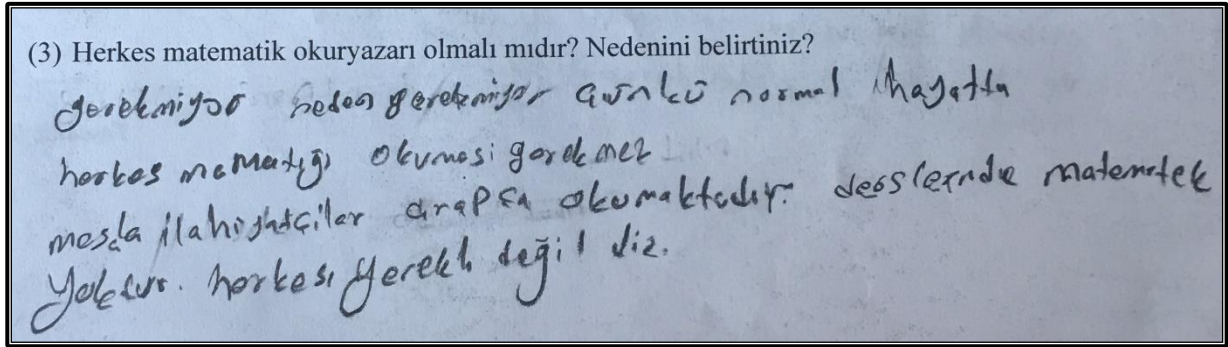 (3) Herkes matematik okuryazarı olmalı mıdır? Nedenini belirtiniz?
gerekmiyor neden gerekmiyor çünkü normal hayatta
herkes okuması gerekmez
ilahiyatçılar arapça okumaktadır. derslerinde matematek
yoktur. herkesi gerekli değil diz.